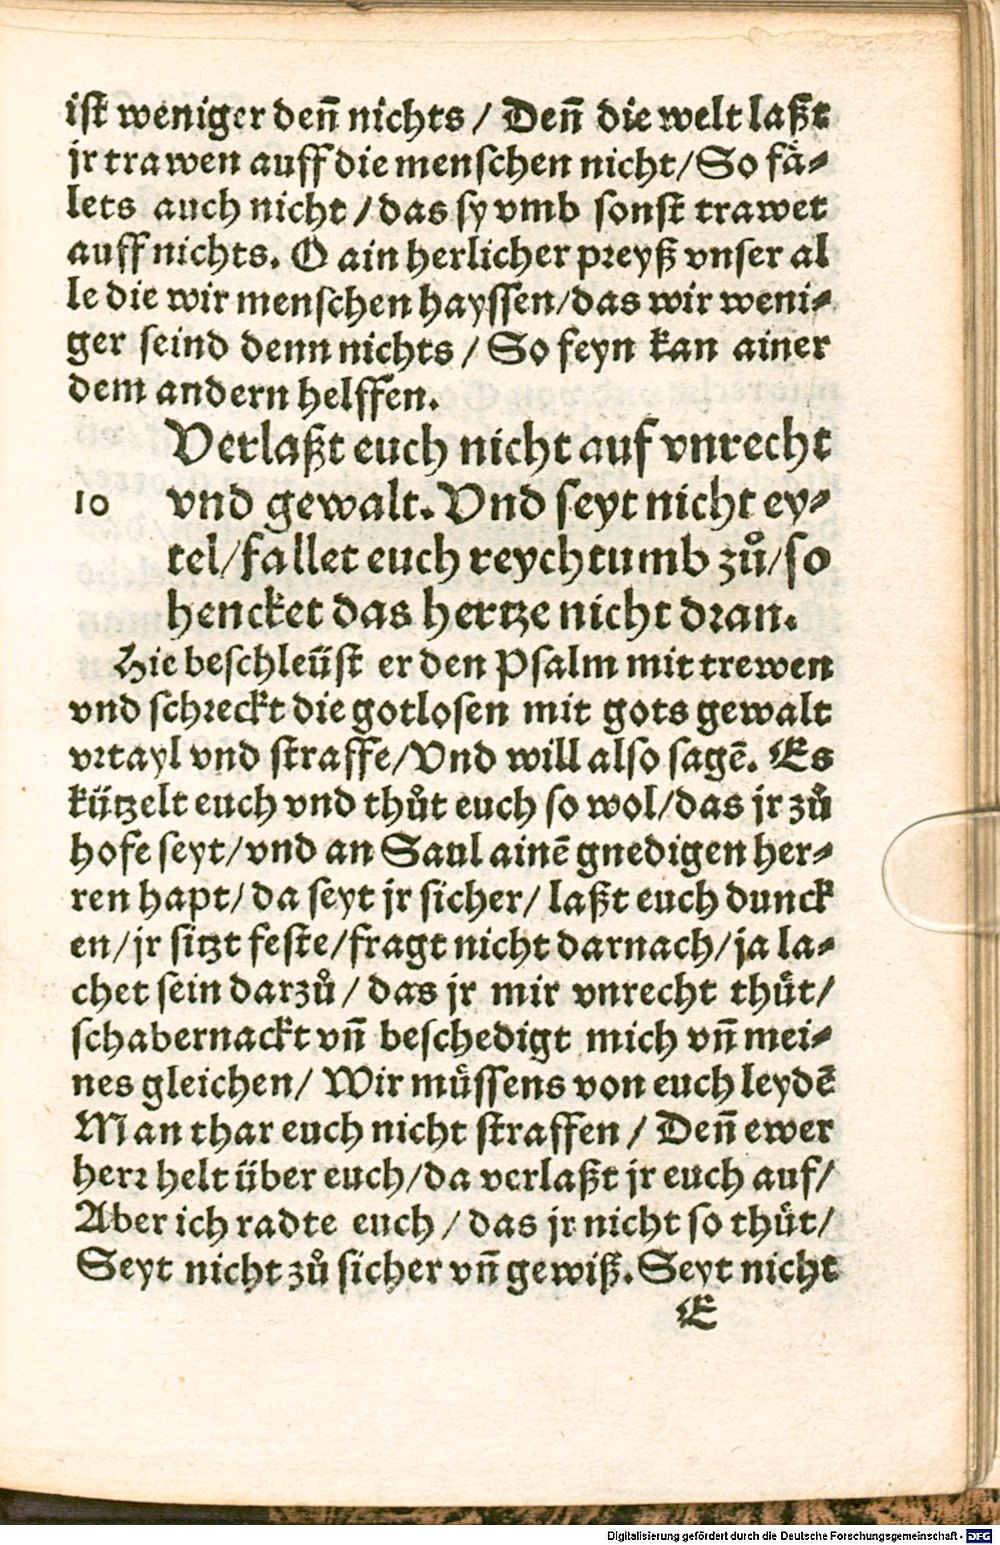 ist weniger deñ nichts / Deñ die welt laßt
jr trawen auff die menschen nicht/So fä-
lets auch nicht / das sy vmb sonst trawet
auff nichts. O ain herlicher preyß vnser al
le die wir menschen hayssen/das wir weni-
ger seind denn nichts / So feyn kan ainer
dem andern helffen.
Verlaßt euch nicht auf vnrecht
10 vnd gewalt. Vnd seyt nicht ey-
tel/fallet euch reychtumb zů/so
hencket das hertze nicht dran.
Hie beschleüst er den Psalm mit trewen
vnd schreckt die gotlosen mit gots gewalt
vrtayl vnd straffe/Vnd will also sagẽ. Es
kützelt euch vnd thůt euch so wol/das jr zů
hofe seyt/vnd an Saul ainẽ gnedigen her-
ren hapt/ da seyt jr sicher/ laßt euch dunck
en/jr sitzt feste/fragt nicht darnach/ja la-
chet sein darzů / das jr mir vnrecht thüt/
schabernackt vñ beschedigt mich vñ mei-
nes gleichen/ Wir müssens von euch leydẽ
Man thar euch nicht straffen / Deñ ewer
herr helt über euch/da verlaßt jr euch auf/
Aber ich radte euch / das jr nicht so thüt/
Seyt nicht zů sicher vñ gewiß. Seyt nicht
E
Digitalisierung gefördert durch die Deutsche Forschungsgemeinschaft - DFG